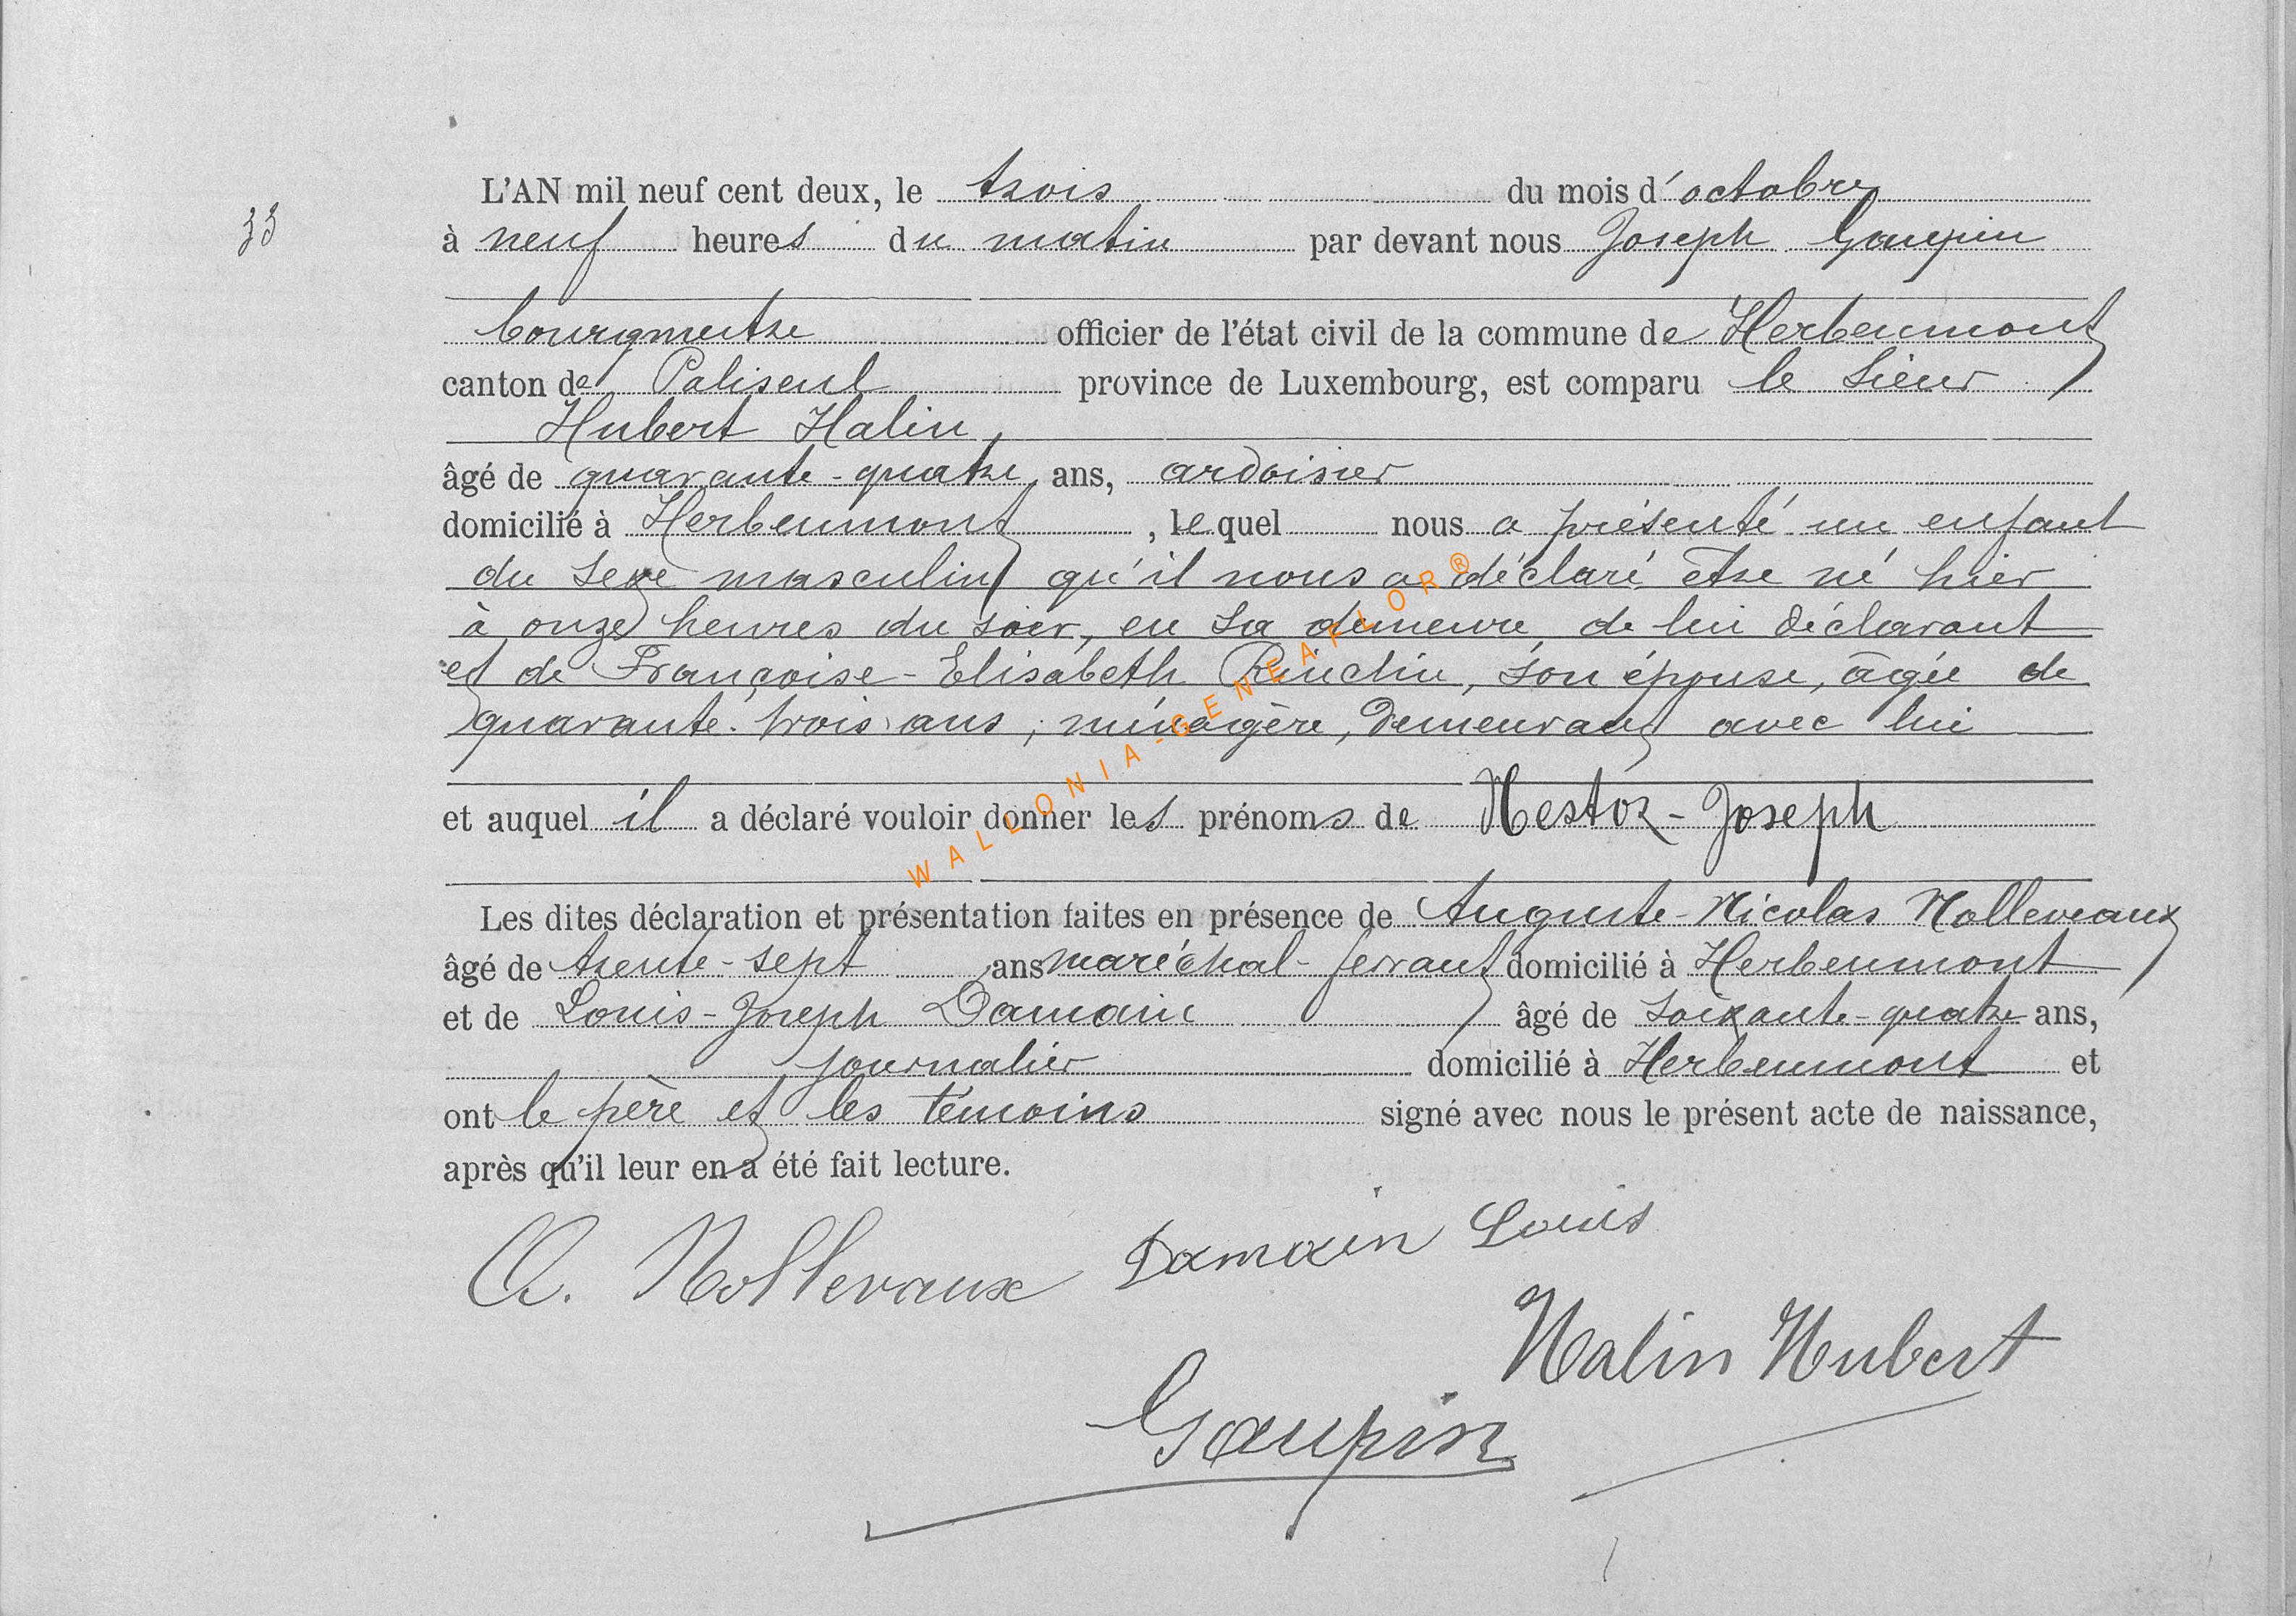 33
L'AN mil neuf cent deux, le trois du mois d'octobre
à neuf heures du matin par devant nous Joseph Gaupin
bourgmestre officier de l'état civil de la commune de Herbeumont
canton de Paliseul province de Luxembourg, est comparu le sieur
Hubert Halin,
âgé de quarante-quatre ans, ardoisier
domicilié à Herbeumont, lequel nous a présenté un enfant
du sexe masculin qu'il nous a déclaré être né hier
à onze heures du soir, en sa demeure, de lui déclarant
et de Françoise-Elisabeth son épouse, âgée de
quarante-trois ans, ménagère, demeurant avec lui
et auquel il a déclaré vouloir donner les prénoms de Nestor-Joseph
Les dites déclaration et présentation faites en présence de Auguste-Nicolas Nolleveaux
âgé de trente-sept ans maréchal-ferrant domicilié à Herbeumont
et de Louis-Joseph Damain âgé de soixante-quatre ans,
journalier domicilié à Herbeumont et
ont le père et les témoins signé avec nous le présent acte de naissance,
après qu'il leur en a été fait lecture.
A. Nollevaux Damain Louis
Halin Hubert
Gaupin
WALLONIA-GENEAFLOR®